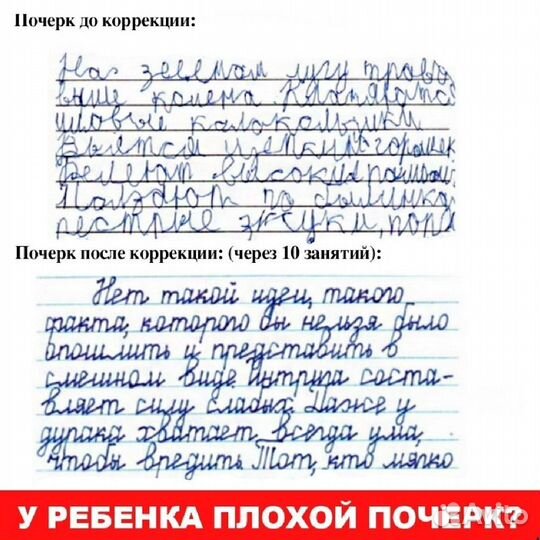 Почерк до коррекции:
На зеленом лугу трова
выше колена. Кланяются
лиловые колокольчики
Вьется цепкий горошек
Белеют высокие ромашки
Ползают по былинка
пестрые жуки, пор
Почерк после коррекции: (через 10 занятий):
Нет такой идеи, такого
факта, которого бы нельзя было
опошлить и представить в
смешном виде. Интрига соста-
вляет силу слабых. Даже у
дурака хватает всегда ума,
чтобы вредить. Тот, кто мягко
У РЕБЕНКА ПЛОХОЙ ПОЧЕРК?
Avito